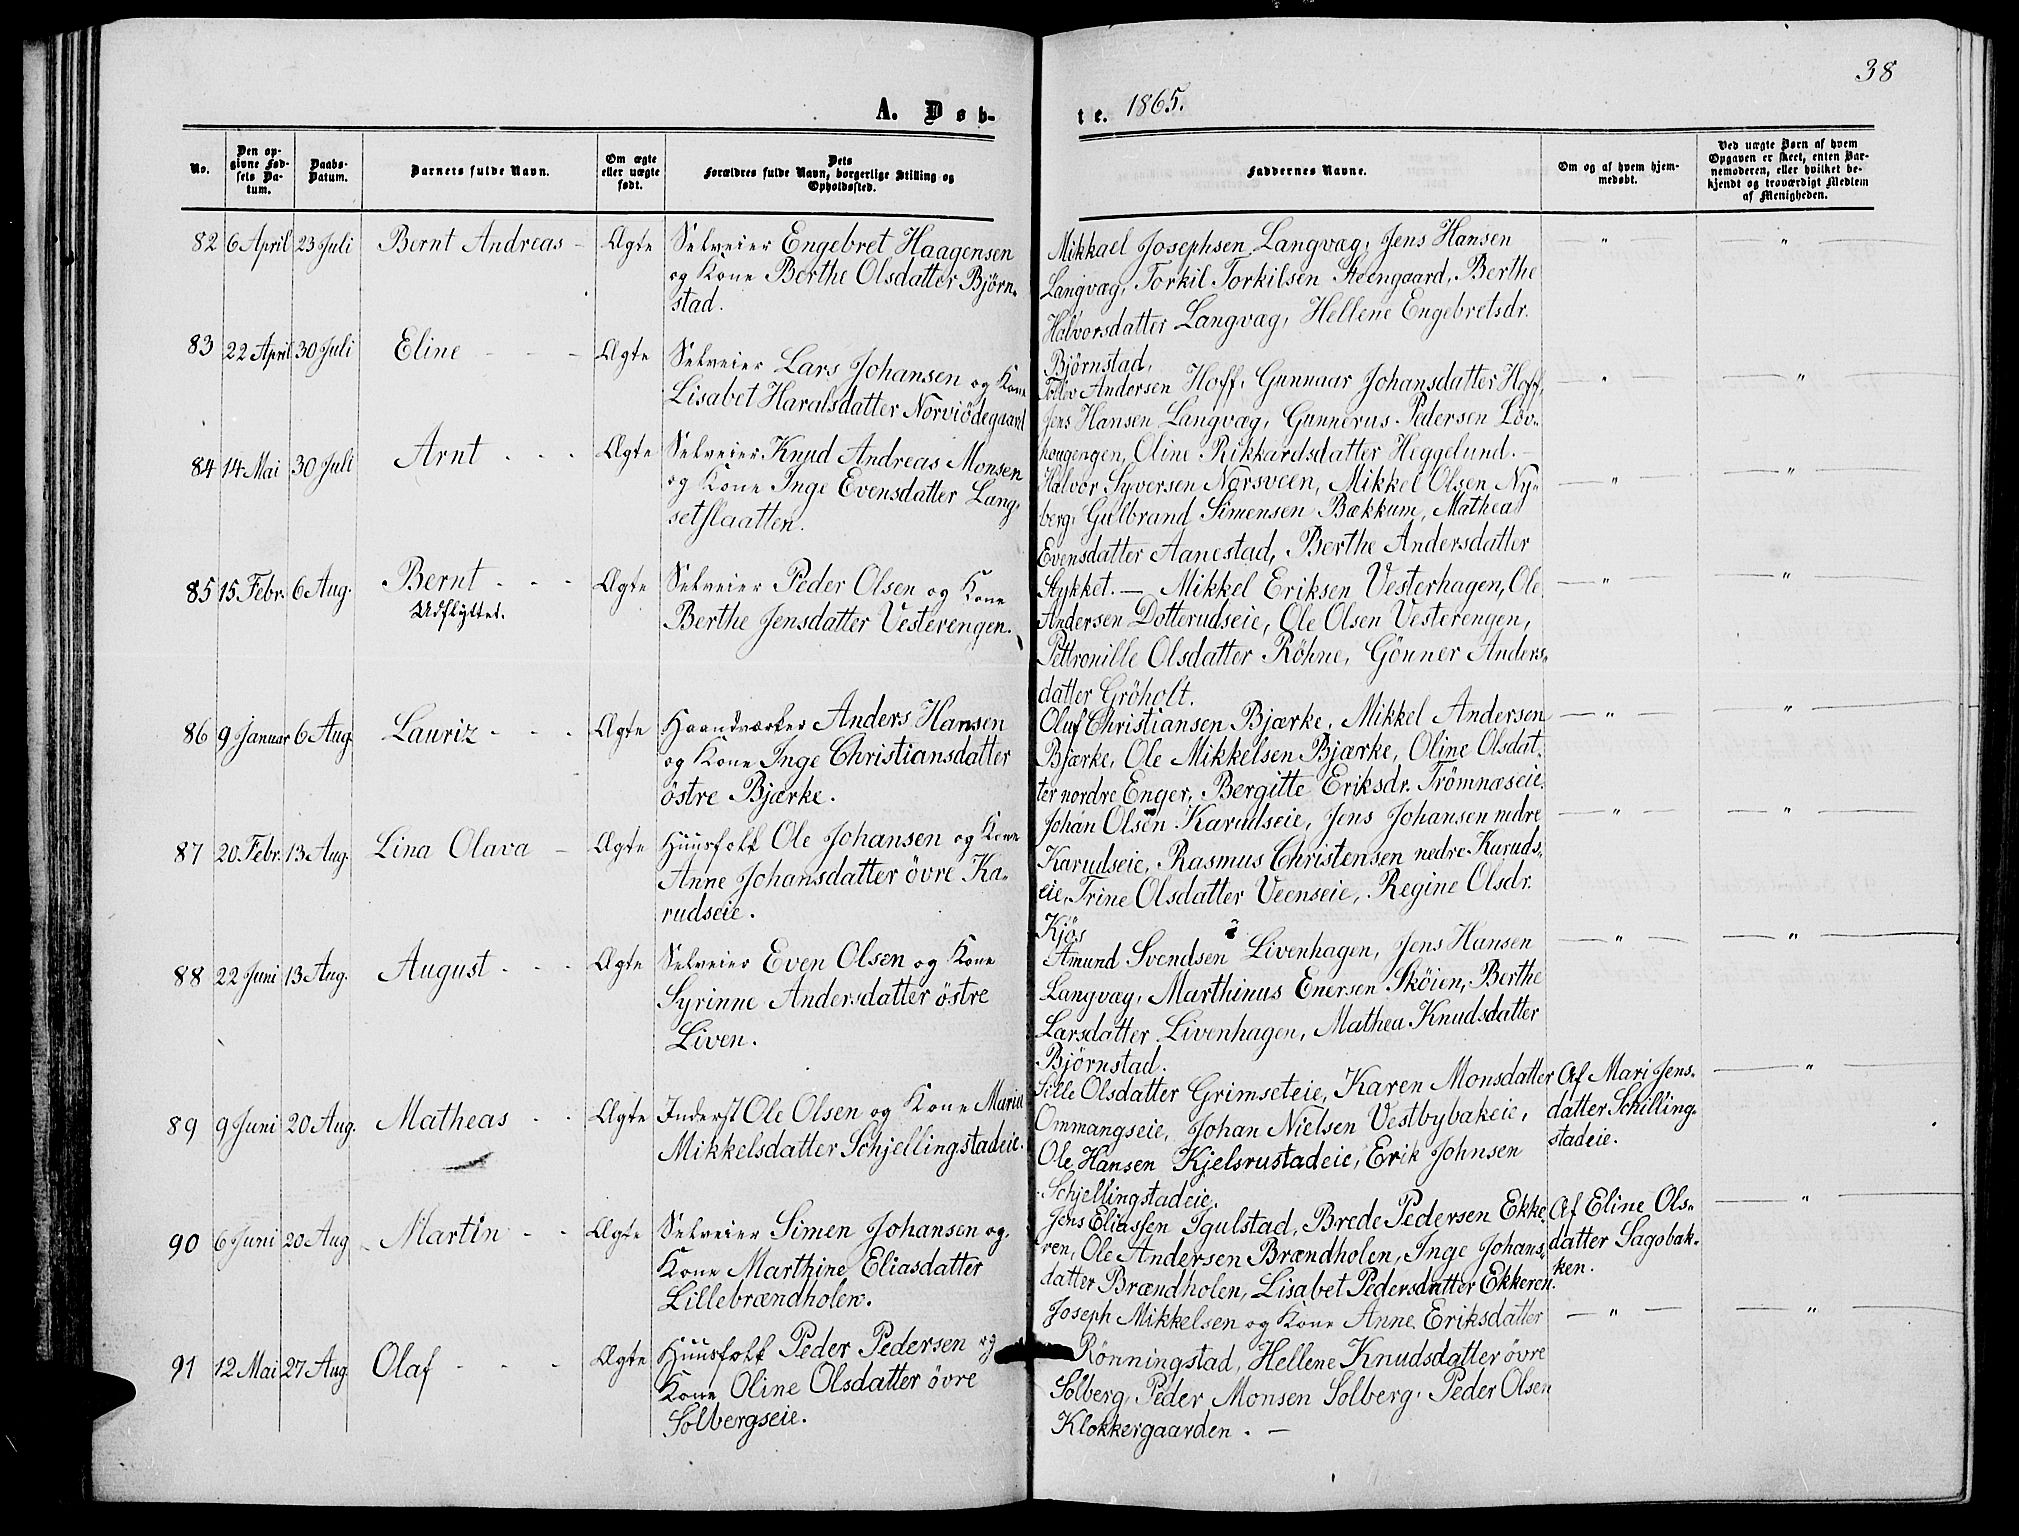 38
A. Døb-
te. 1865.
No.
Den op-
givne Fød-
sels Da-
tum.
Daabs-
Datum.
Barnets fulde Navn.
Om ægte
eller uægte
født.
Dets
Forældres fulde Navn, borgerlige Stilling og
Opholdssted.
Faddernes Navne.
Om og af hvem hjem-
medøbt.
Ved uægte Børn af hvem
Opgaven er skeet, enten Bar-
nemoderen, eller hvilket be-
kjendt og troværdigt Medlem
af Menigheden.
82 6 April 23 Juli Bernt Andreas - Ægte Selveier Engebret Haagensen
og Kone Berthe Olsdatter Bjørn-
stad.
Mikkael Josephsen Langvæg, Jens Hansen — " — — " —
Langvæg, Torkil Torkilsen Steengaard, Berthe
Halvorsdatter Langvæg, Hellene Engebretsdr.
Bjørnstad.
83 22 April 30 Juli Eline - - - Ægte Selveier Lars Johansen og Kone
Lisabet Haralsdatter Norviödegaard
Tollev Andersen Hoff, Gunnaar Johansdatter Hoff, — " — — " —
Jens Hansen Langvæg, Gunnerus Pedersen Löv-
hougengen, Oline Rikkardsdatter Heggelund. -
84 14 Mai 30 Juli Arnt - - - Ægte Selveier Knud Andreas Monsen
og Kone Inge Evensdatter Lang-
setslaatten.
Halvor Syversen Narsveen, Mikkel Olsen Ny- — " — — " —
berg, Gulbrand Simensen Bækkum, Mathea
Evensdatter Aanestad, Berthe Andersdatter
Stykket. —
85 15 Febr. 6 Aug. Bernt - - - Ægte Selveier Peder Olsen og Kone
Udflyttet. Berthe Jensdatter Vesterengen.
Mikkel Eriksen Vesterhagen, Ole — " — — " —
Andersen Dotterudseie, Ole Olsen Vesterengen,
Pettronille Olsdatter Röhne, Gönner Anders-
datter Gröholt.
86 9 Januar 6 Aug. Lauriz - - - Ægte Haandværker Anders Hansen
og Kone Inge Christiansdatter
östre Bjærke.
Oluf Christiansen Bjærke, Mikkel Andersen — " — — " —
Bjærke, Ole Mikkelsen Bjærke, Oline Olsdat-
ter nordre Enger, Bergitte Eriksdr. Trömnæseie.
87 20 Febr. 13 Aug. Lina Olava - Ægte Huusfolk Ole Johansen og Kone
Anne Johansdatter övre Ka-
rudseie.
Johan Olsen Karudseie, Jens Johansen nedre — " — — " —
Karudseie, Rasmus Christensen nedre Karuds-
eie, Trine Olsdatter Veenseie, Regine Olsdr.
Kjös
88 22 Juni 13 Aug. August - - - Ægte Selveier Even Olsen og Kone
Syrinne Andersdatter östre
Liven.
Amund Svendsen Livenhagen, Jens Hansen — " — — " —
Langvæg, Marthinus Enersen Sköien, Berthe
Larsdatter Livenhagen, Mathea Knudsdatter
Bjørnstad.
89 9 Juni 20 Aug. Matheas - - Ægte Inderst Ole Olsen og Kone Maria
Mikkelsdatter Schjellingstadeie.
Sille Olsdatter Grimseteie, Karen Monsdatter Af Mari Jens- — " —
Ommangseie, Johan Nielsen Vestbybakeie, datter Schilling-
Ole Hansen Kjelsrustadeie, Erik Johnsen stadeie.
Schjellingstadeie.
90 6 Juni 20 Aug - Martin - - Ægte Selveier Simen Johansen og
Kone Marthine Eliasdatter
Lillebrændholen.
Jens Eliassen Igulstad, Brede Pedersen Ekke- Af Eline Ols- — " —
ren, Ole Andersen Brændholen, Inge Johans- datter Sagobak-
datter Brændholen, Lisabet Pedersdatter Ekkeren. ken.
91 12 Mai 27 Aug. Olaf - - - Ægte Huusfolk Peder Pedersen og
Kone Oline Olsdatter övre
Solbergseie.
Joseph Mikkelsen og Kone Anne Eriksdatter — " — — " —
Rönningstad, Hellene Knudsdatter övre
Solberg, Peder Monsen Solberg, Peder Olsen
Klokkergaarden. —